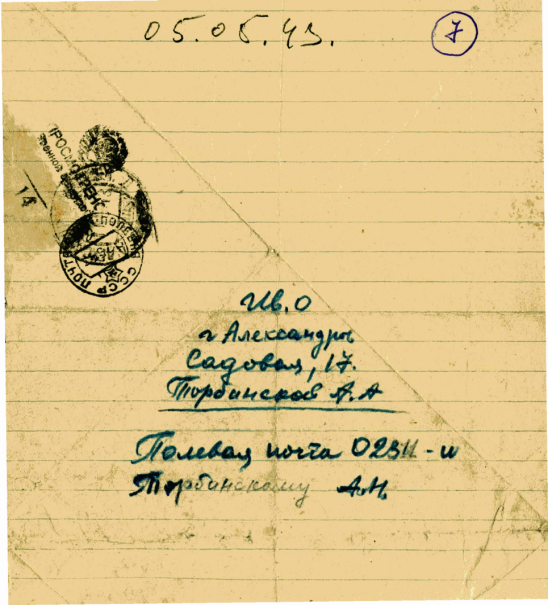 05.05.43.
7
ПРОСМОТРЕНО
Военной
14
СССР ПОЧТА
Ив. О
г Александров
Садовая, 17.
Торбинской А.А
Полевая почта 02511-и
Торбинскому А.Н.